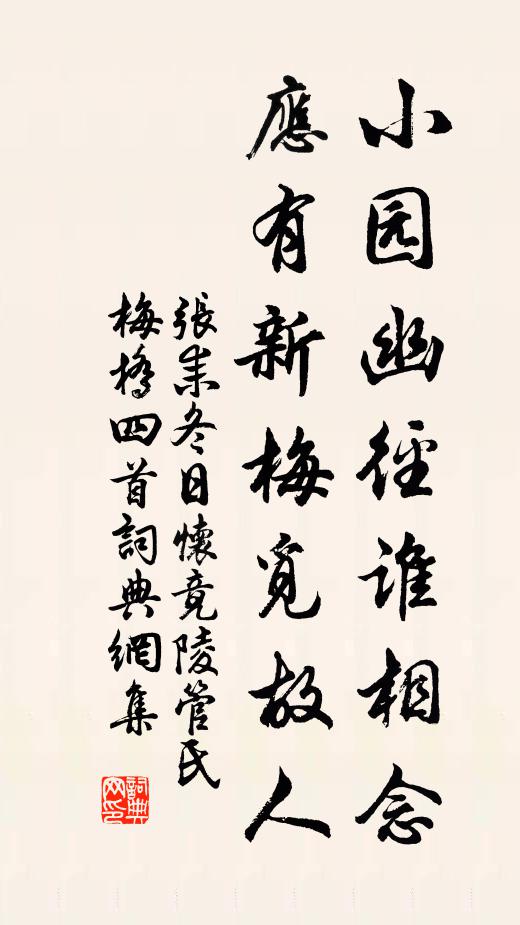 小园幽徑谁相念
應有新梅覓故人
張耒冬日懷竟陵管氏
梅橋四首詞典網集
詞典網印